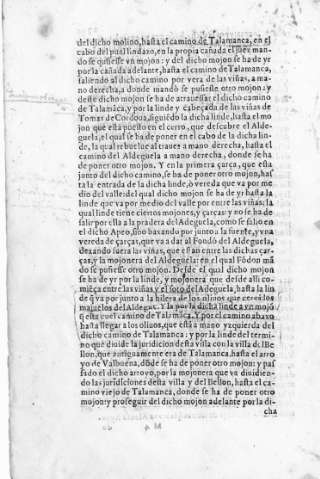 del dicho molino, hasta el camino de Talamanca, en el
cabo del dicho lindazo, en la propia cañada el juez man-
do se pusiesse vn mojon: y del dicho mojon se ha de yr
por la cañada adelante, hasta el camino de Talamanca,
saliendo al dicho camino por vera de las viñas, a ma-
no derecha, a donde mandò se pusiesse otro mojon: y
deste dicho mojon se ha de atrauessar el dicho camino
de Talamãca, y por la linde y cabeçada de las viñas de
Tomas de Cordoua, siguiẽdo la dicha linde, hasta el mo
jon que està puesto en el cerro, que descubre el Alde-
guela, el qual se ha de poner en el cabo de la dicha lin-
de, la qual rebuelue al traues a mano derecha, hasta el
camino del Aldeguela a mano derecha, donde se ha
de poner otro mojon. Y en la primera çarça, que està
junto del dicho camino, se ha de poner otro mojon, has
ta la entrada de la dicha linde, ò vereda que va por me
dio del valle: del qual dicho mojon se ha de yr hasta la
linde que va por medio del valle por entre las viñas: la
qual linde tiene ciertos mojones, y çarças y no se ha de
salir por ella a la pradera del Aldeguela, como se salio en
el dicho Apeo, sino baxando por junto a la fuente, y vna
vereda de çarças, que va a dar al Fondõ del Aldeguela,
dexando fuera las viñas, que estan entre las dichas çar-
ças, y la mojonera del Aldeguela: en el qual Fòdon mã
do se pusiesse otro mojon. Desde el qual dicho mojon
se ha de yr por la linde, y mojonera que desde alli co-
miẽça entre las viñas y el soto del Aldeguela, hasta la lin
de q̃ va por junto a la hilera de los olmos que
majuelos del Aldeguela. Y la por la dicha linde a vn mojõ
q̃ esta en el camino de Talamãca. Y por el camino abaxo
hasta llegar a los olmos, que està a mano yzquierda del
dicho camino de Talamanca: y por la linde del termi-
no que diuide la juridicion desta villa con la villa de Be
llon, que antiguamente era de Talamanca, hasta el arro
yo de Valbuena, dõde se ha de poner otro mojon: y pas
sado el dicho arroyo, por la mojonera que va diuidien-
do las jurisdiciones desta villa y del Bellon, hasta el ca-
mino viejo de Talamanca, donde se ha de poner otro
mojon: y proseguir del dicho mojon adelante por la di-
cha